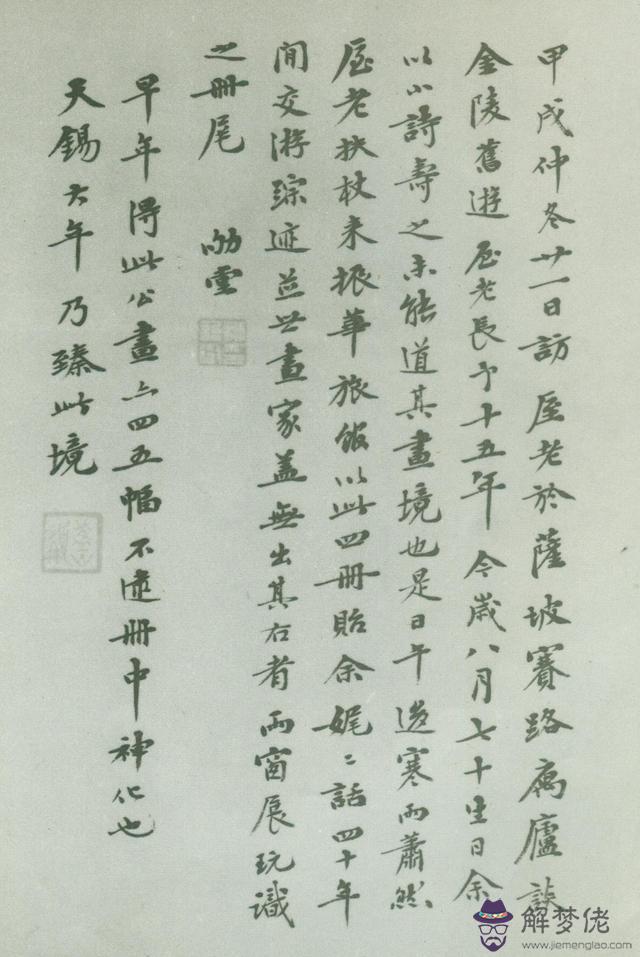 甲戌仲冬廿一日訪 厔老於薩坡賽路寓廬談
金陵舊遊 厔老長予十五年 今歲八月七十生日余
以小詩壽之未能道其畫境也是日午 寒雨蕭然
厔老扶杖来振華旅館以此四冊貽余娓〻話四十年
間交游踪迹並世畫家蓋無出其右者 雨窗展玩識
之冊尾 㔢雲
早年得此公畫亦四五幅不逮冊中神化也
天錫大年乃臻此境
解梦佬
www.jiemenglao.com